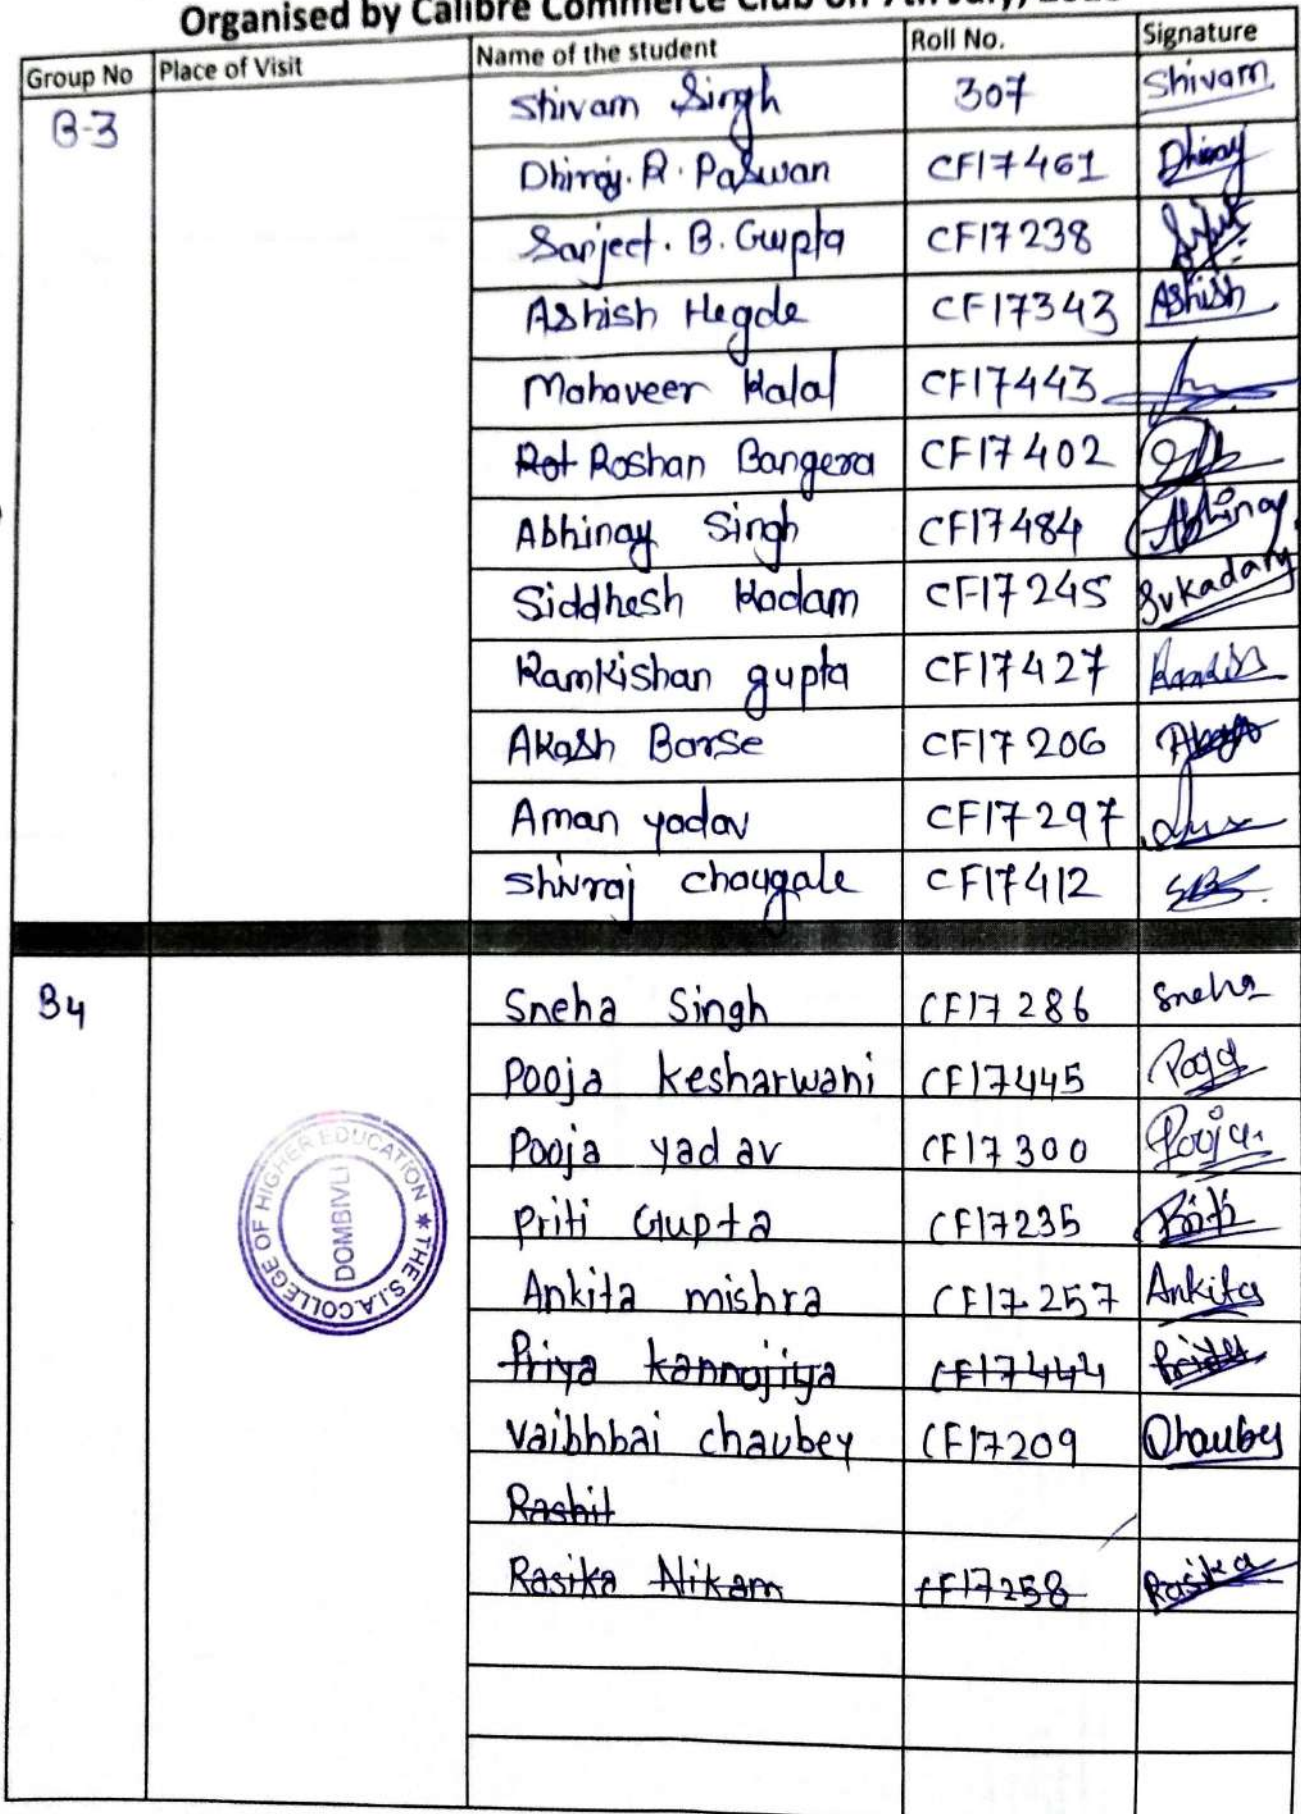 Organised by Calibre Commerce Club on 7th July,
Group No Place of Visit Name of the student Roll No. Signature
B-3 Shivam Singh 307 Shivam
Dhiraj. R. Paswan CF17461 Dhiraj
Sanjeet. B. Gupta CF17238
Ashish Hegde CF17343 Ashish
Mahaveer Kalal CF17443
Rot Roshan Bangera CF17402
Abhinay Singh CF17484 Abhinay
Siddhesh Kadam CF17245 Svkadam
Ramkishan gupta CF17427
Akash Borse CF17206 Akash
Aman yadav CF17297
Shivraj chougale CF17412 SBS
B4 Sneha Singh CF17286 Sneha
Pooja kesharwani CF17445 Pooja
Pooja yadav CF17300 Pooja
Priti Gupta CF17235 Priti
Ankita mishra CF17257 Ankita
Priya kannojiya CF17444
Vaibhbai chaubey CF17209 Chaubey
Rashit
Rasika Nikam CF17258 Rasika
THE S.I.A. COLLEGE OF HIGHER EDUCATION *
DOMBIVLI